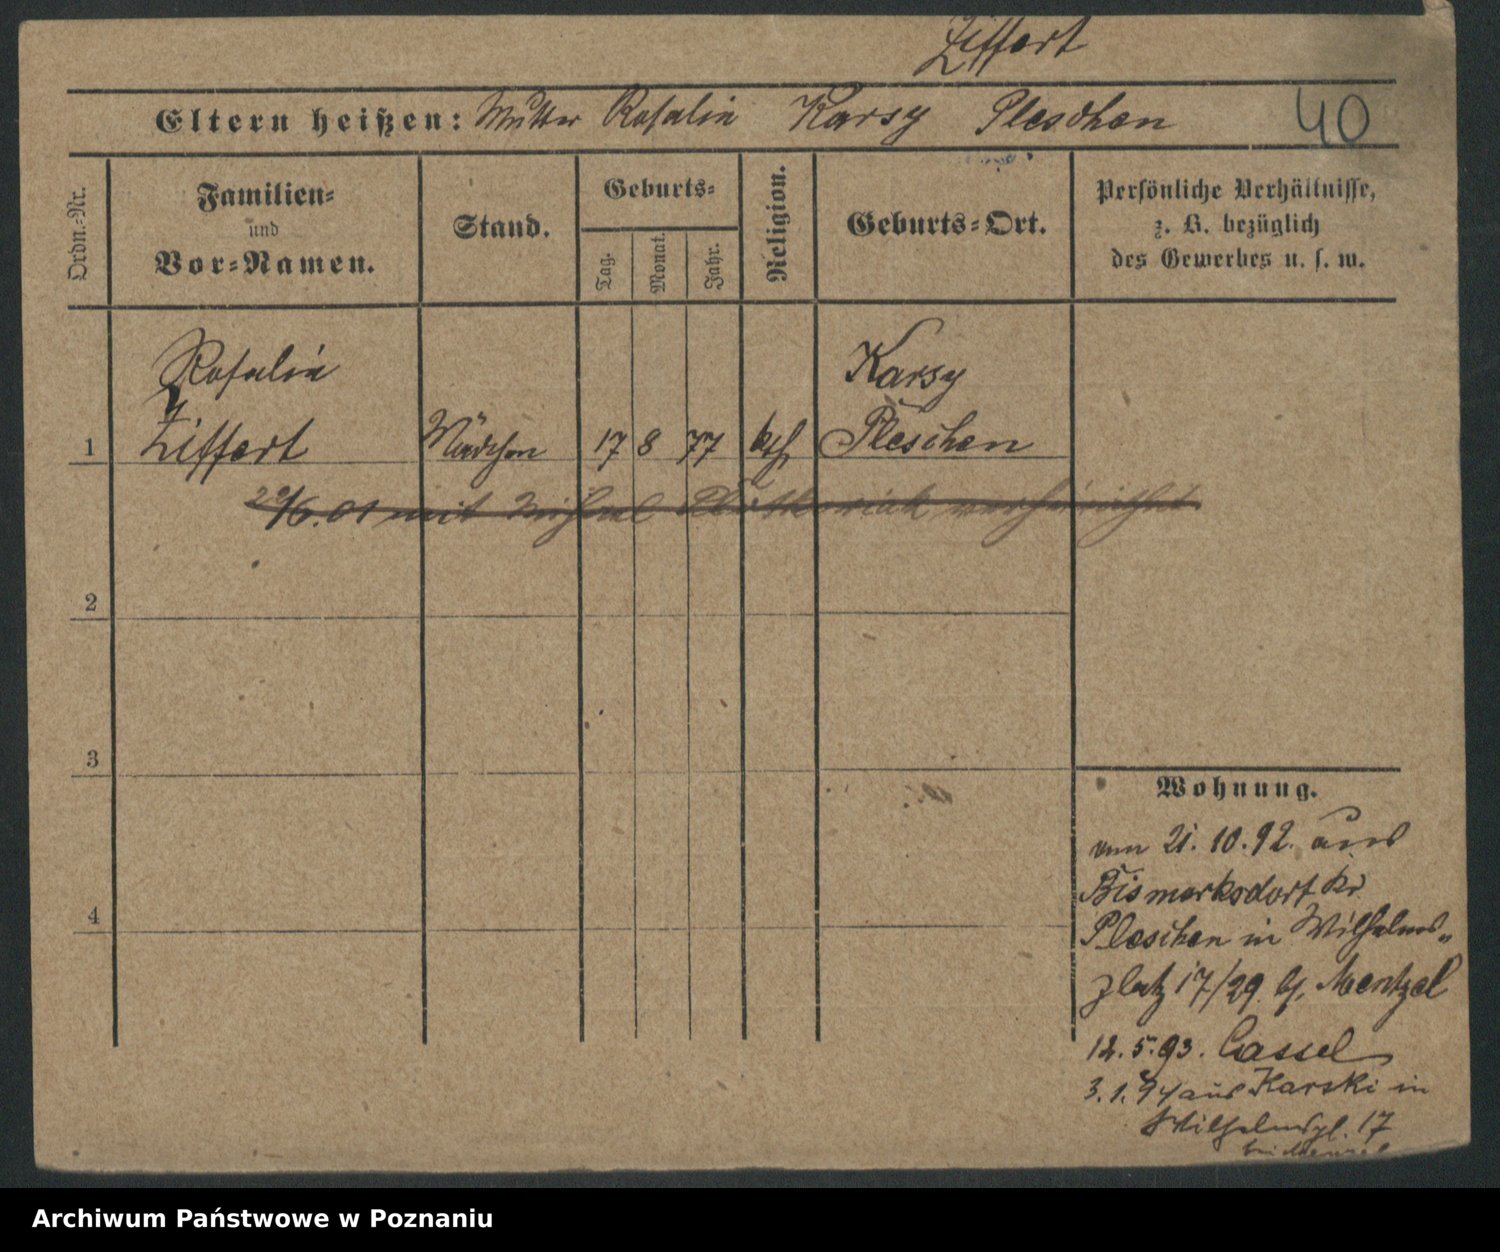 Ziffert
Eltern heißen: Mutter Rosalie Karsy Pleschen
40
Ordn.-Nr.
Familien-
und
Vor-Namen.
Stand.
Geburts-
Tag.
Monat.
Jahr.
Religion.
Geburts-Ort.
Persönliche Verhältnisse,
z. B. bezüglich
des Gewerbes u. s. w.
Rosalie Karsy
1 Ziffert Mädchen 17 8 77 kth Pleschen
29/6.01 mit
2
3
4
Wohnung.
vom 21. 10. 92. aus
Bismarksdorf Kr.
Pleschen in Wilhelms-
platz 17/29 b/. Mentzel
12. 5. 93. Cassel
3. 1. 94 aus Karski in
Wilhelmspl. 17
bei Menzel
Archiwum Państwowe w Poznaniu